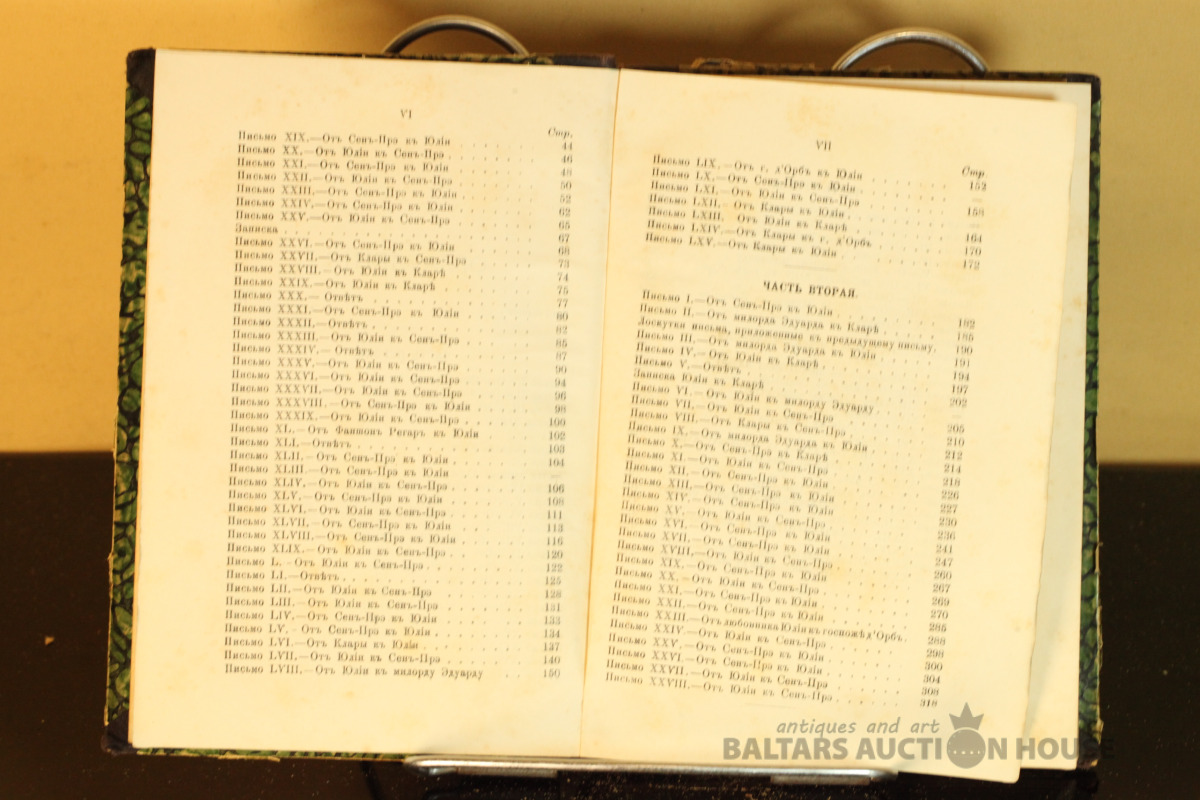 VI
Стр.
Письмо XIX.—Отъ Сенъ-Прэ къ Юліи 44
Письмо XX.—Отъ Юліи къ Сенъ-Прэ 46
Письмо XXI.—Отъ Сенъ-Прэ къ Юліи 48
Письмо XXII.—Отъ Юліи къ Сенъ-Прэ 50
Письмо XXIII.—Отъ Сенъ-Прэ къ Юліи 52
Письмо XXIV.—Отъ Сенъ-Прэ къ Юліи 62
Письмо XXV.—Отъ Юліи къ Сенъ-Прэ 65
Записка 67
Письмо XXVI.—Отъ Сенъ-Прэ къ Юліи 68
Письмо XXVII.—Отъ Клары къ Сенъ-Прэ 73
Письмо XXVIII.—Отъ Юліи къ Кларѣ 74
Письмо XXIX.—Отъ Юліи къ Кларѣ 75
Письмо XXX.—Отвѣтъ 77
Письмо XXXI.—Отъ Сенъ-Прэ къ Юліи 80
Письмо XXXII.—Отвѣтъ 82
Письмо XXXIII.—Отъ Юліи къ Сенъ-Прэ 85
Письмо XXXIV.—Отвѣтъ 87
Письмо XXXV.—Отъ Юліи къ Сенъ-Прэ 90
Письмо XXXVI.—Отъ Юліи къ Сенъ-Прэ 94
Письмо XXXVII.—Отъ Юліи къ Сенъ-Прэ 96
Письмо XXXVIII.—Отъ Сенъ-Прэ къ Юліи 98
Письмо XXXIX.—Отъ Юліи къ Сенъ-Прэ 100
Письмо XL.—Отъ Фаншонъ Регаръ къ Юліи 102
Письмо XLI.—Отвѣтъ 103
Письмо XLII.—Отъ Сенъ-Прэ къ Юліи 104
Письмо XLIII.—Отъ Сенъ-Прэ къ Юліи —
Письмо XLIV.—Отъ Юліи къ Сенъ-Прэ 106
Письмо XLV.—Отъ Сенъ-Прэ къ Юліи 108
Письмо XLVI.—Отъ Юліи къ Сенъ-Прэ 111
Письмо XLVII.—Отъ Сенъ-Прэ къ Юліи 113
Письмо XLVIII.—Отъ Сенъ-Прэ къ Юліи 116
Письмо XLIX.—Отъ Юліи къ Сенъ-Прэ 120
Письмо L.—Отъ Юліи къ Сенъ-Прэ 122
Письмо LI.—Отвѣтъ 125
Письмо LII.—Отъ Юліи къ Сенъ-Прэ 128
Письмо LIII.—Отъ Юліи къ Сенъ-Прэ 131
Письмо LIV.—Отъ Сенъ-Прэ къ Юліи 133
Письмо LV.—Отъ Сенъ-Прэ къ Юліи 134
Письмо LVI.—Отъ Клары къ Юліи 137
Письмо LVII.—Отъ Юліи къ Сенъ-Прэ 140
Письмо LVIII.—Отъ Юліи къ милорду Эдуарду 150
VII
Стр
Письмо LIX.—Отъ г. д'Орбъ къ Юліи 152
Письмо LX.—Отъ Сенъ-Прэ къ Юліи —
Письмо LXI.—Отъ Юліи къ Сенъ-Прэ 158
Письмо LXII.—Отъ Клары къ Юліи —
Письмо LXIII.—Отъ Юліи къ Кларѣ 164
Письмо LXIV.—Отъ Клары къ г. д'Орбъ 170
Письмо LXV.—Отъ Клары къ Юліи 172
ЧАСТЬ ВТОРАЯ.
Письмо I.—Отъ Сенъ-Прэ къ Юліи 182
Письмо II.—Отъ милорда Эдуарда къ Кларѣ 185
Лоскутки письма, приложенные къ предыдущему письму. 190
Письмо III.—Отъ милорда Эдуарда къ Юліи 191
Письмо IV.—Отъ Юліи къ Кларѣ 194
Письмо V.—Отвѣтъ 197
Записка Юліи къ Кларѣ 202
Письмо VI.—Отъ Юліи къ милорду Эдуарду —
Письмо VII.—Отъ Юліи къ Сенъ-Прэ 205
Письмо VIII.—Отъ Клары къ Сенъ-Прэ 210
Письмо IX.—Отъ милорда Эдуарда къ Юліи 212
Письмо X.—Отъ Сенъ-Прэ къ Кларѣ 214
Письмо XI.—Отъ Юліи къ Сенъ-Прэ 218
Письмо XII.—Отъ Сенъ-Прэ къ Юліи 226
Письмо XIII.—Отъ Сенъ-Прэ къ Юліи 227
Письмо XIV.—Отъ Сенъ-Прэ къ Юліи 230
Письмо XV.—Отъ Юліи къ Сенъ-Прэ 236
Письмо XVI.—Отъ Сенъ-Прэ къ Юліи 241
Письмо XVII.—Отъ Сенъ-Прэ къ Юліи 247
Письмо XVIII.—Отъ Юліи къ Сенъ-Прэ 260
Письмо XIX.—Отъ Сенъ-Прэ къ Юліи 267
Письмо XX.—Отъ Юліи къ Сенъ-Прэ 269
Письмо XXI.—Отъ Сенъ-Прэ къ Юліи 270
Письмо XXII.—Отъ Сенъ-Прэ къ Юліи 285
Письмо XXIII.—Отъ любовника Юліи къ госпожѣ д'Орбъ. 288
Письмо XXIV.—Отъ Юліи къ Сенъ-Прэ 298
Письмо XXV.—Отъ Сенъ-Прэ къ Юліи 300
Письмо XXVI.—Отъ Сенъ-Прэ къ Юліи 304
Письмо XXVII.—Отъ Юліи къ Сенъ-Прэ 308
Письмо XXVIII.—Отъ Юліи къ Сенъ-Прэ 318
antiques and art
BALTARS AUCTION HOUSE